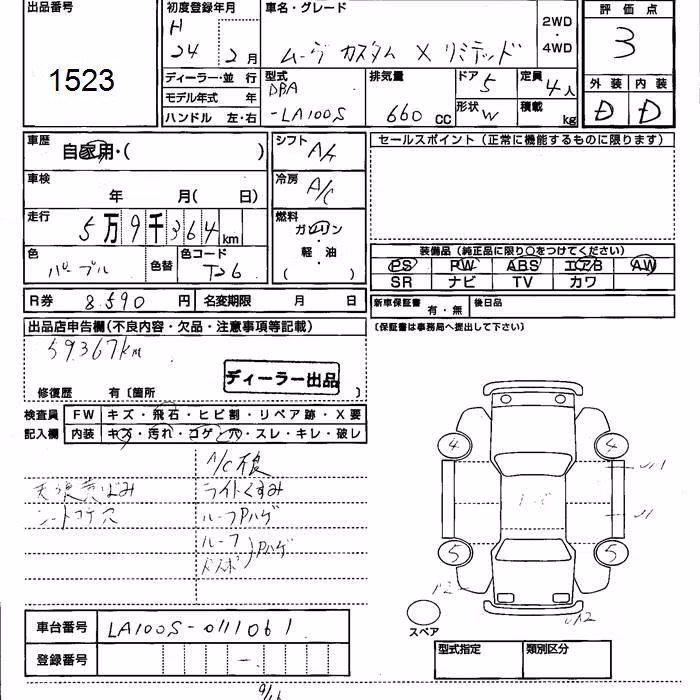 出品番号
1523
初度登録年月
H
24 2 月
ディーラー・並 行
モデル年式 年
ハンドル 左・右
車名・グレード
ムーヴ カスタム X リミテッド
2WD
・
4WD
型式
DBA
-LA100S
排気量
660 CC
ドア 5
形状 W
定員
4人
積載
kg
評価点
3
外装 内装
D D
車歴
自家用・( )
車検
年 月( 日)
走行
5万9千364km
色
パープル
色替
色コード
T26
シフト
A/t
冷房
A/C
燃料
ガソリン
・
軽・油
( )
セールスポイント (正常に機能するものに限ります)
装備品 (純正品に限り○をつけてください)
PS PW ABS エアB AW
SR ナビ TV カワ
R券 8,590 円 名変期限 月 日
新車保証書 有・無 後日品
(保証書は事務局へ提出して下さい)
出品店申告欄(不良内容・欠品・注意事項等記載)
59.367km
ディーラー出品
修復歴 有〔箇所 〕
検査員 FW キズ・飛石・ヒビ割・リペア跡・X要
記入欄 内装 キズ・汚れ・コゲ・穴・スレ・キレ・破レ
A/C不良
天張黄ばみ ライトくすみ
シートコゲ穴 ルーフPハゲ
ルーフ
Pハゲ
4 4
5 5
スペア
車台番号 LA100S-0111061
登録番号 -
型式指定 類別区分